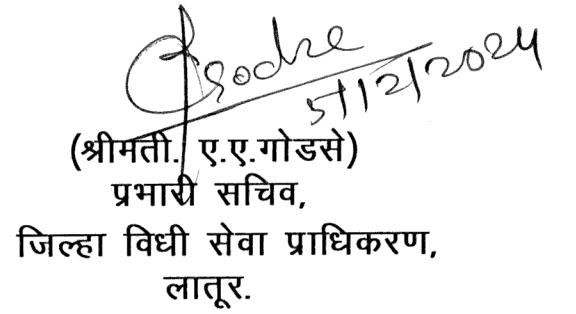 5/12/2024
(श्रीमती. ए.ए.गोडसे)
प्रभारी सचिव,
जिल्हा विधी सेवा प्राधिकरण,
लातूर.